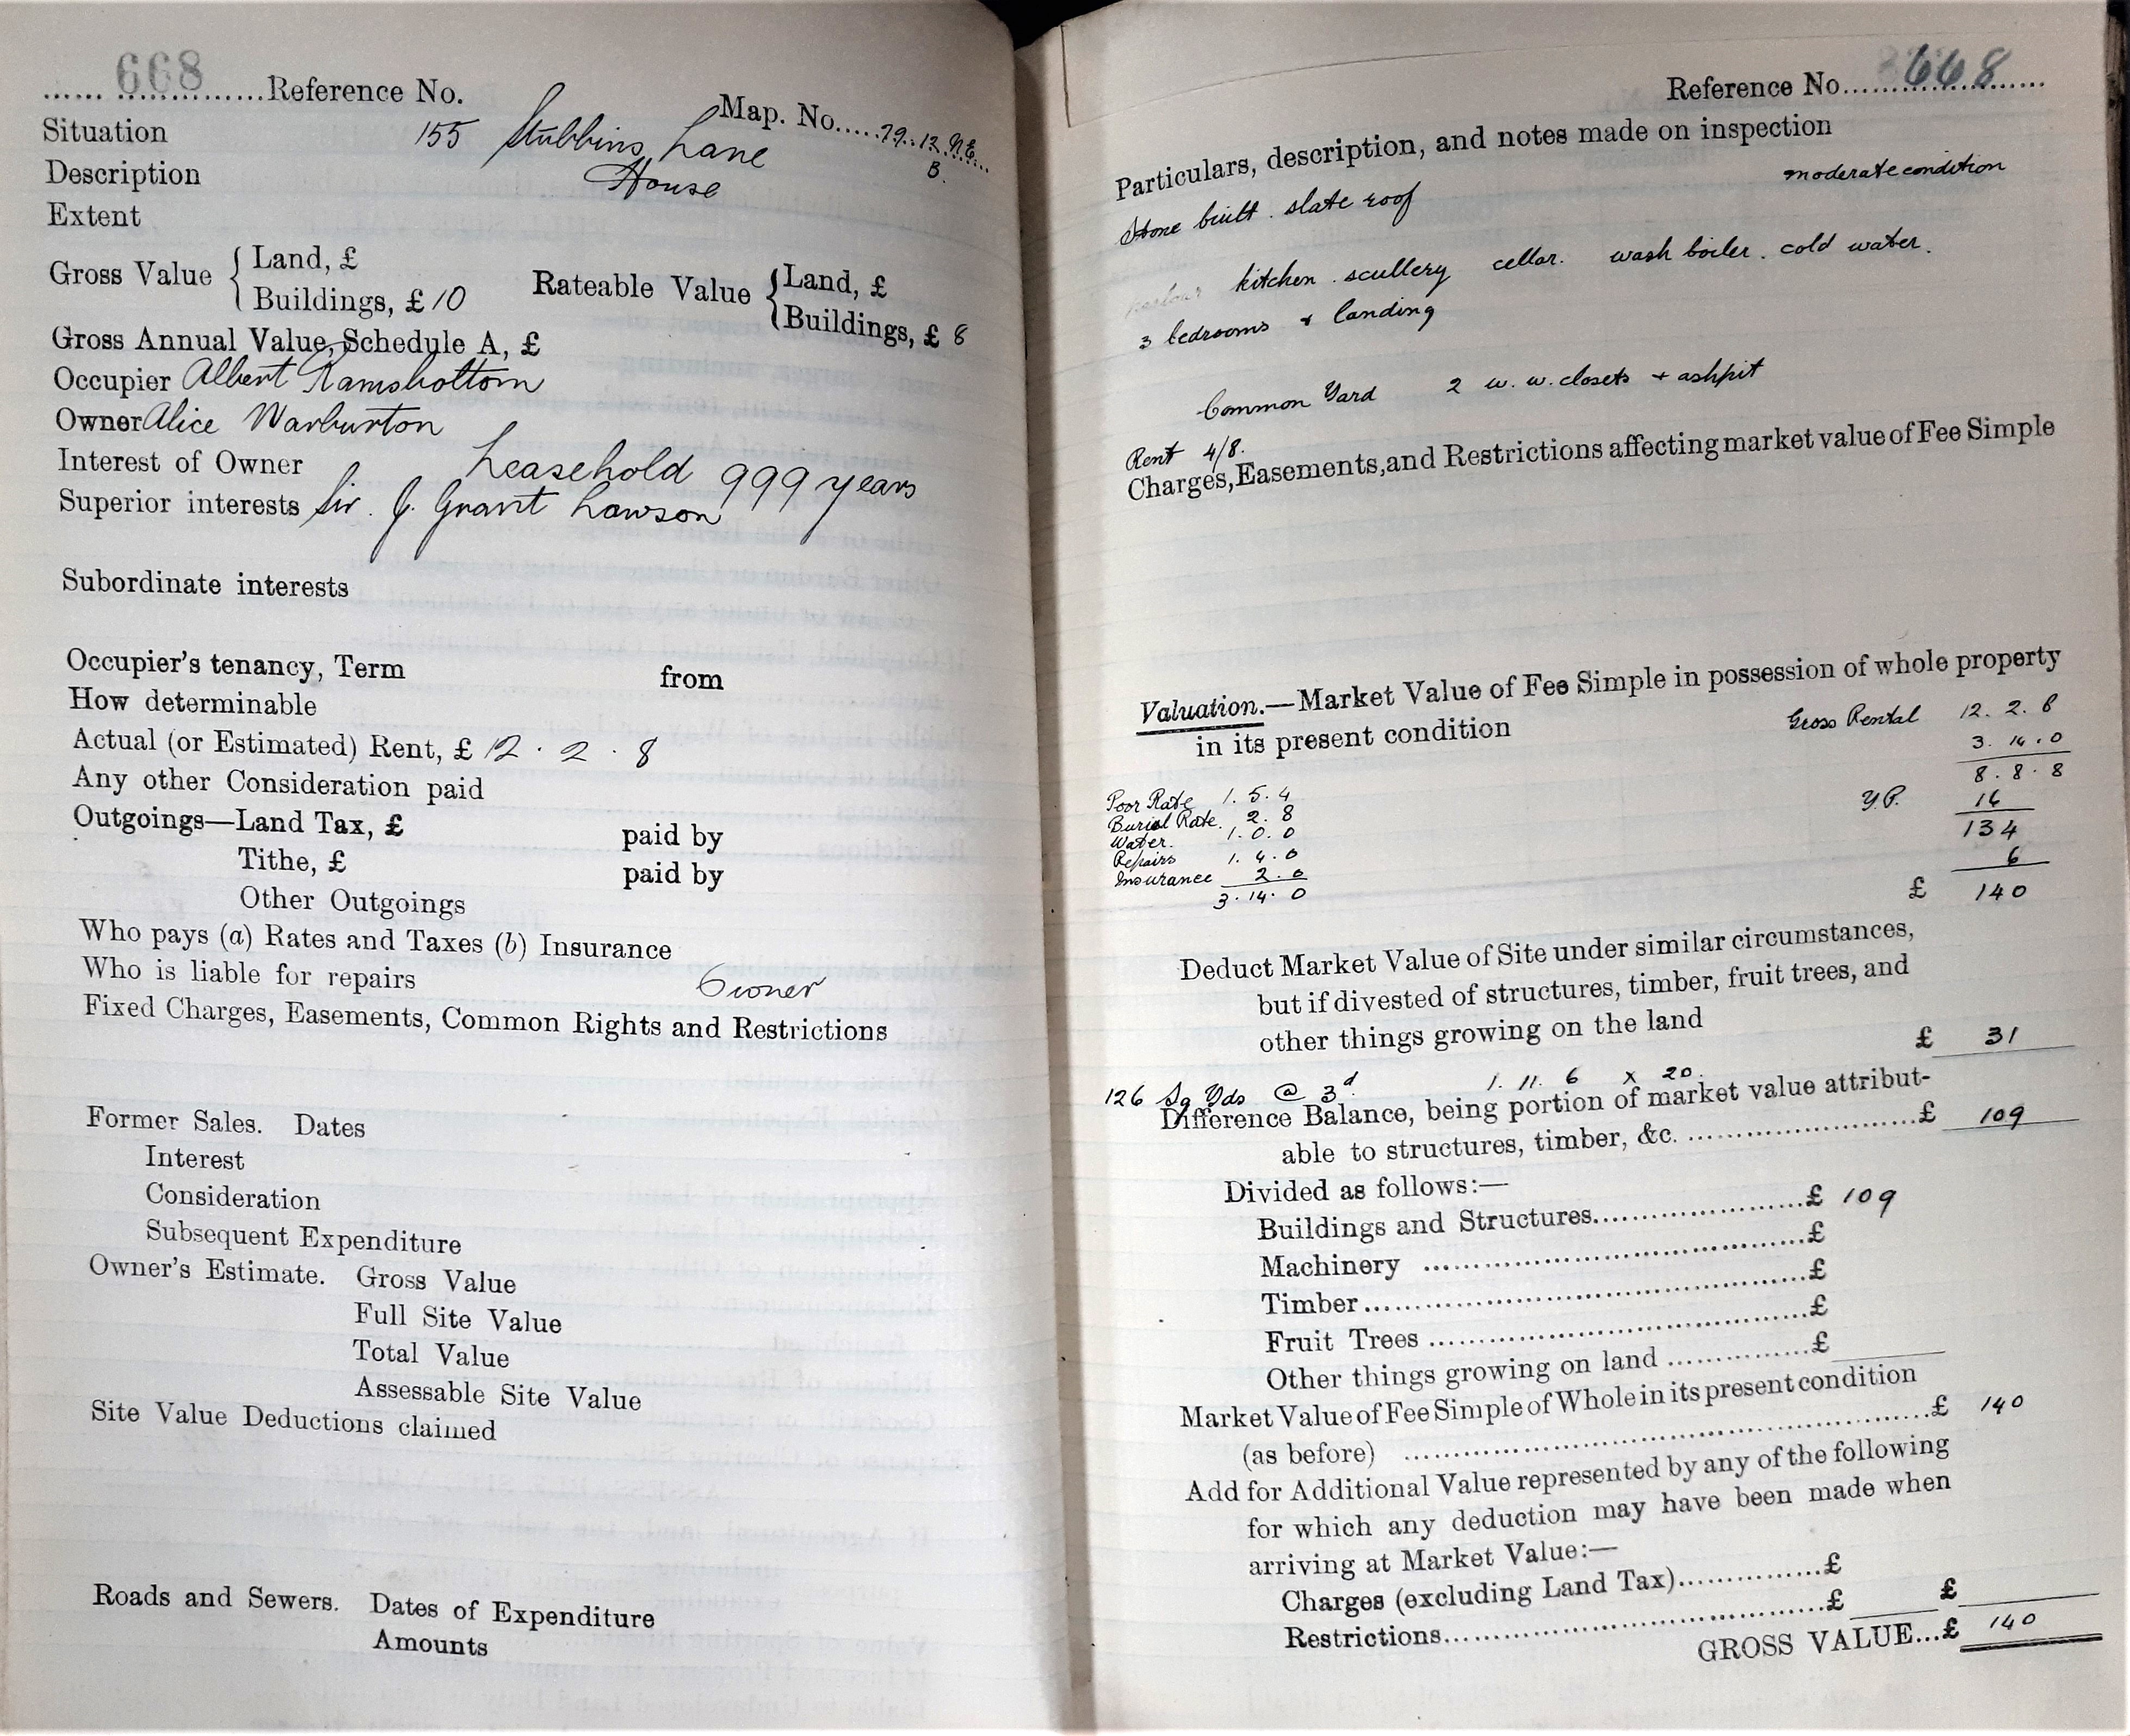 668
......Reference No.
Map. No.....79..12.N.E...
B.
Situation 155 Stubbins Lane
Description House
Extent
Gross Value { Land, £
Buildings, £ 10
Rateable Value { Land, £
Buildings, £ 8
Gross Annual Value, Schedule A, £
Occupier Albert Ramsbottom
Owner Alice Warburton
Interest of Owner Leasehold 999 years
Superior interests Sir. J. Grant Lawson
Subordinate interests
Occupier's tenancy, Term from
How determinable
Actual (or Estimated) Rent, £ 12 . 2 . 8
Any other Consideration paid
Outgoings—Land Tax, £ paid by
Tithe, £ paid by
Other Outgoings
Who pays (a) Rates and Taxes (b) Insurance
Who is liable for repairs Owner
Fixed Charges, Easements, Common Rights and Restrictions
Former Sales. Dates
Interest
Consideration
Subsequent Expenditure
Owner's Estimate. Gross Value
Full Site Value
Total Value
Assessable Site Value
Site Value Deductions claimed
Roads and Sewers. Dates of Expenditure
Amounts
Reference No....668......
Particulars, description, and notes made on inspection
moderate condition
Stone built . slate roof
parlour kitchen . scullery cellar. wash boiler . cold water.
3 bedrooms + landing
Common Yard 2 w. w. closets + ashpit
Rent 4/8.
Charges, Easements, and Restrictions affecting market value of Fee Simple
Valuation.—Market Value of Fee Simple in possession of whole property
in its present condition
Gross Rental 12. 2. 8
3. 14. 0
8. 8. 8
Y.P. 16
134
6
£ 140
Poor Rate 1. 5. 4
Burial Rate. 2. 8
Water. 1. 0. 0
Repairs 1. 4. 0
Insurance 2. 0
3. 14. 0
Deduct Market Value of Site under similar circumstances,
but if divested of structures, timber, fruit trees, and
other things growing on the land £ 31
126 Sq Yds @ 3d 1. 11. 6 x 20.
Difference Balance, being portion of market value attribut-
able to structures, timber, &c. ..........£ 109
Divided as follows:—
Buildings and Structures..........£ 109
Machinery ..........£
Timber..........£
Fruit Trees ..........£
Other things growing on land ..........£
Market Value of Fee Simple of Whole in its present condition
(as before) ..........£ 140
Add for Additional Value represented by any of the following
for which any deduction may have been made when
arriving at Market Value:—
Charges (excluding Land Tax)..........£
Restrictions..........£ £
GROSS VALUE...£ 140